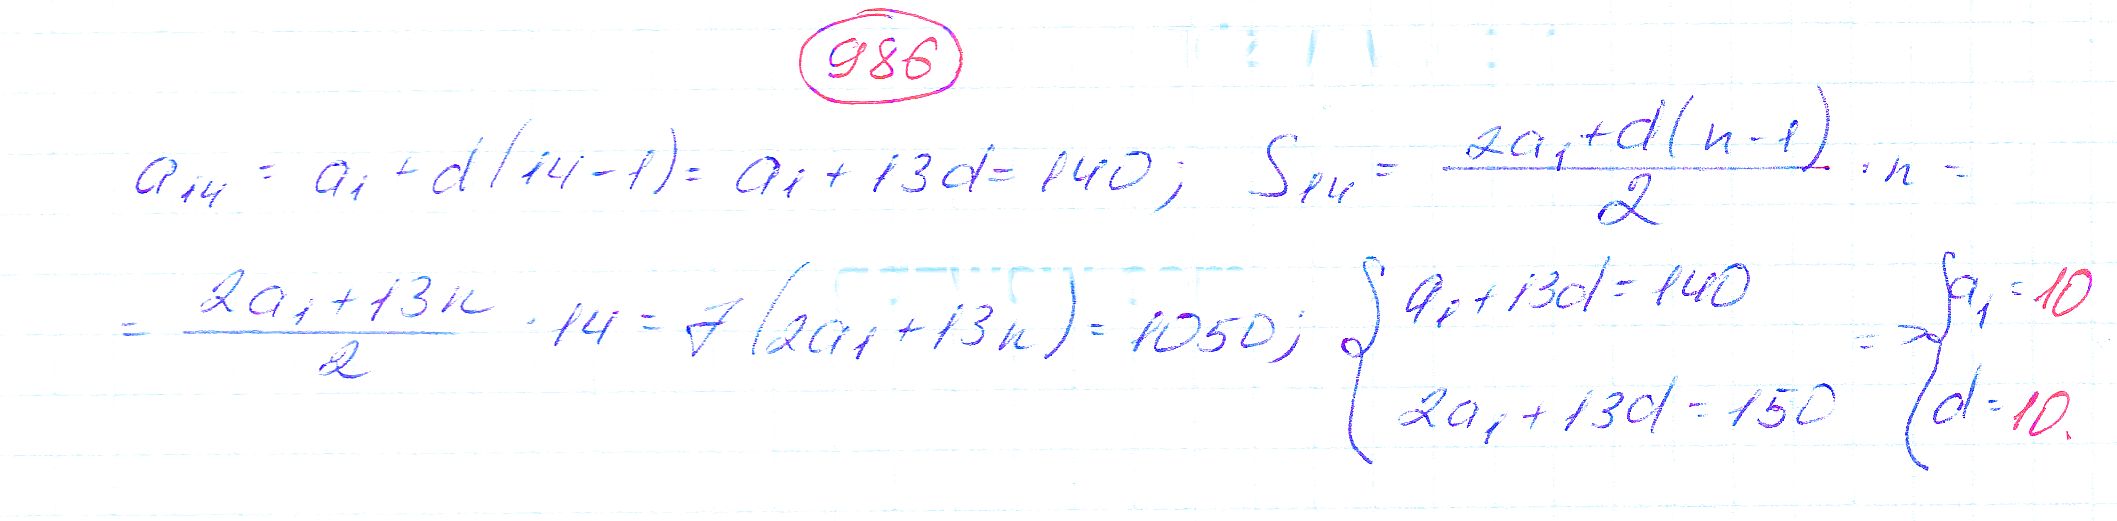 986
a₁₄ = a₁ + d(14-1) = a₁ + 13d = 140; S₁₄ = (2a₁ + d(n-1))/2 · n =
= (2a₁ + 13n)/2 · 14 = 7(2a₁ + 13n) = 1050; { a₁ + 13d = 140 2a₁ + 13d = 150 => { a₁ = 10 d = 10.